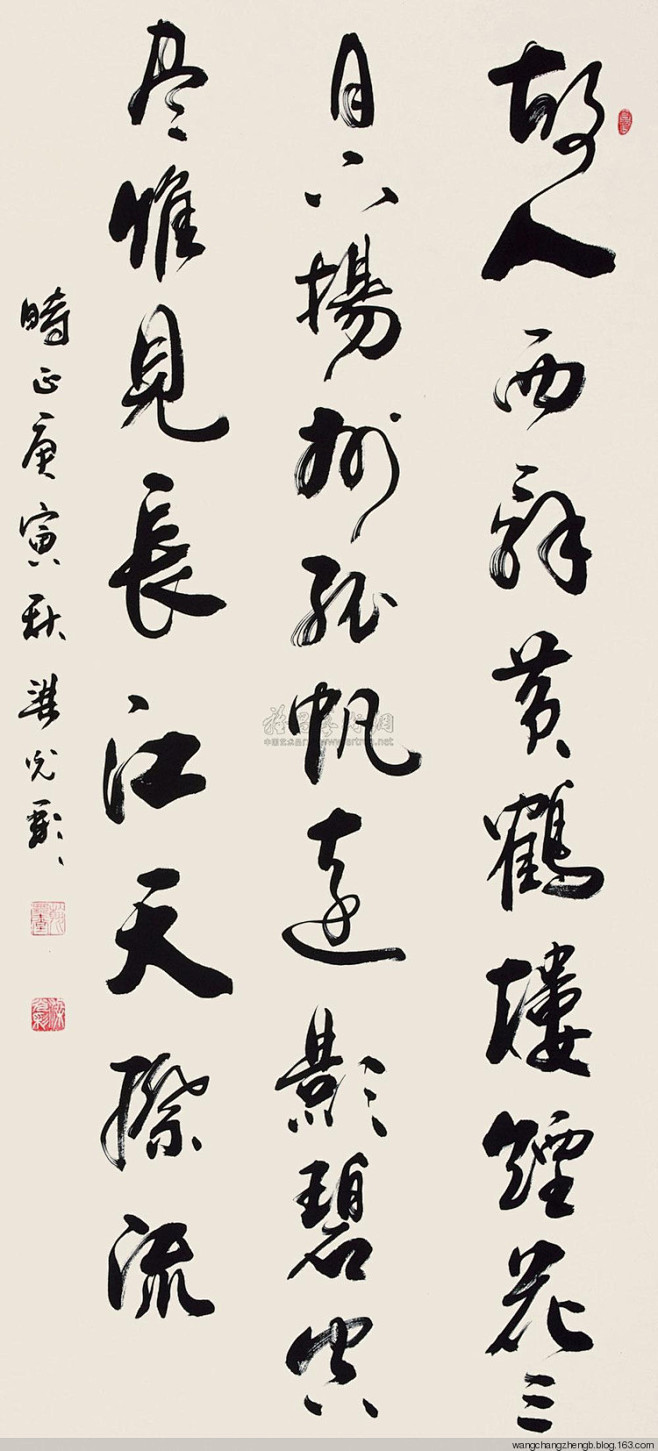 故人西辞黄鶴樓煙花三
月下揚州孤帆遠影碧空
尽惟見長江天際流
時正庚寅秋梁
wangchangzhengb.blog.163.com